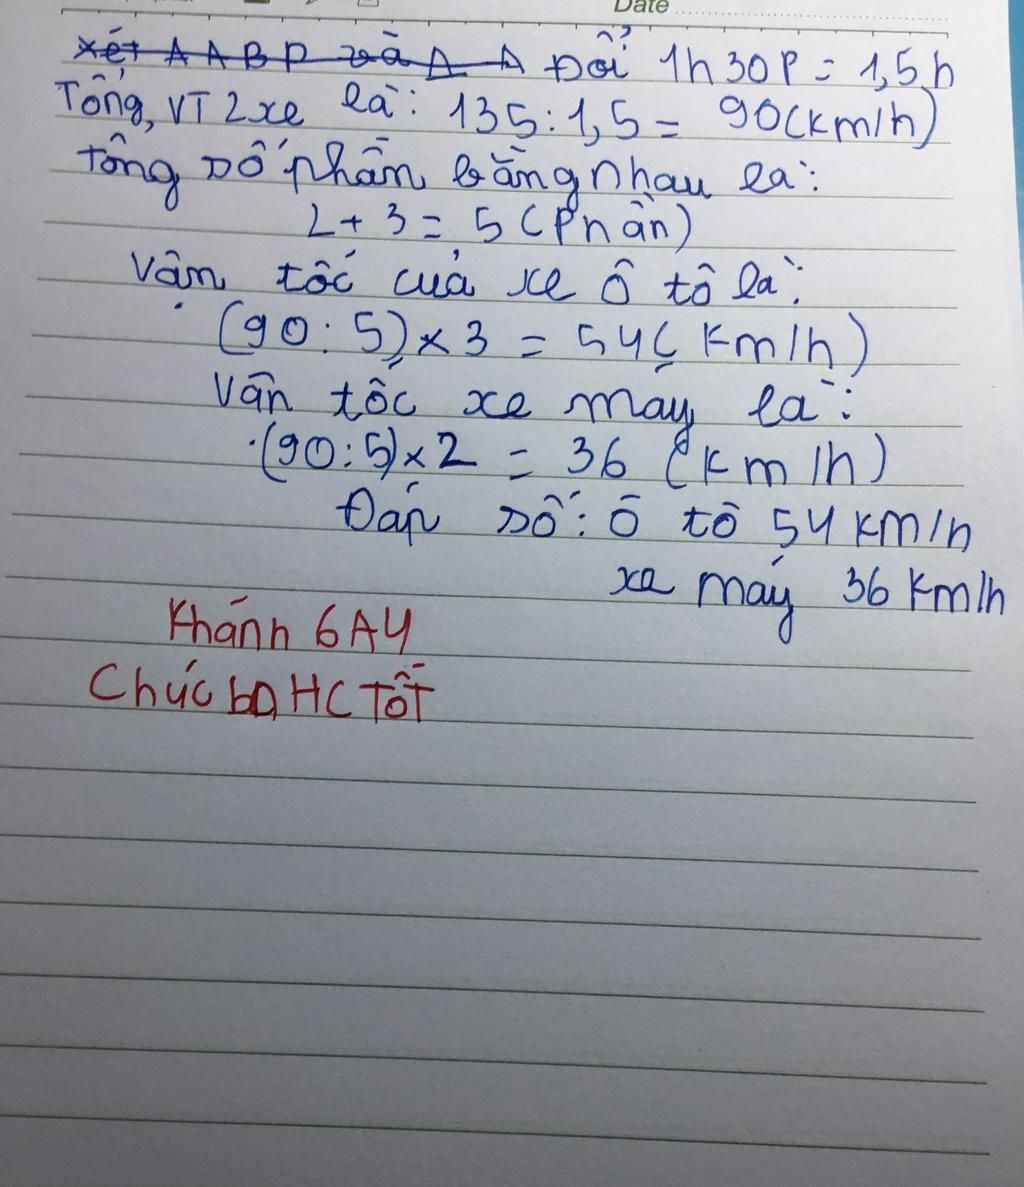 Date
xét Δ ABP và Δ A Đổi 1h30P = 1,5h
Tổng VT 2 xe là: 135:1,5 = 90(km/h)
tổng số phần bằng nhau là:
2 + 3 = 5 (Phần)
Vận tốc của xe ô tô là:
(90:5)×3 = 54( Km/h)
Vận tốc xe máy là:
(90:5)×2 = 36 (Km/h)
Đáp số: Ô tô 54 km/h
xe máy 36 Km/h
Khánh 6A4
Chúc bạn HC TỐT